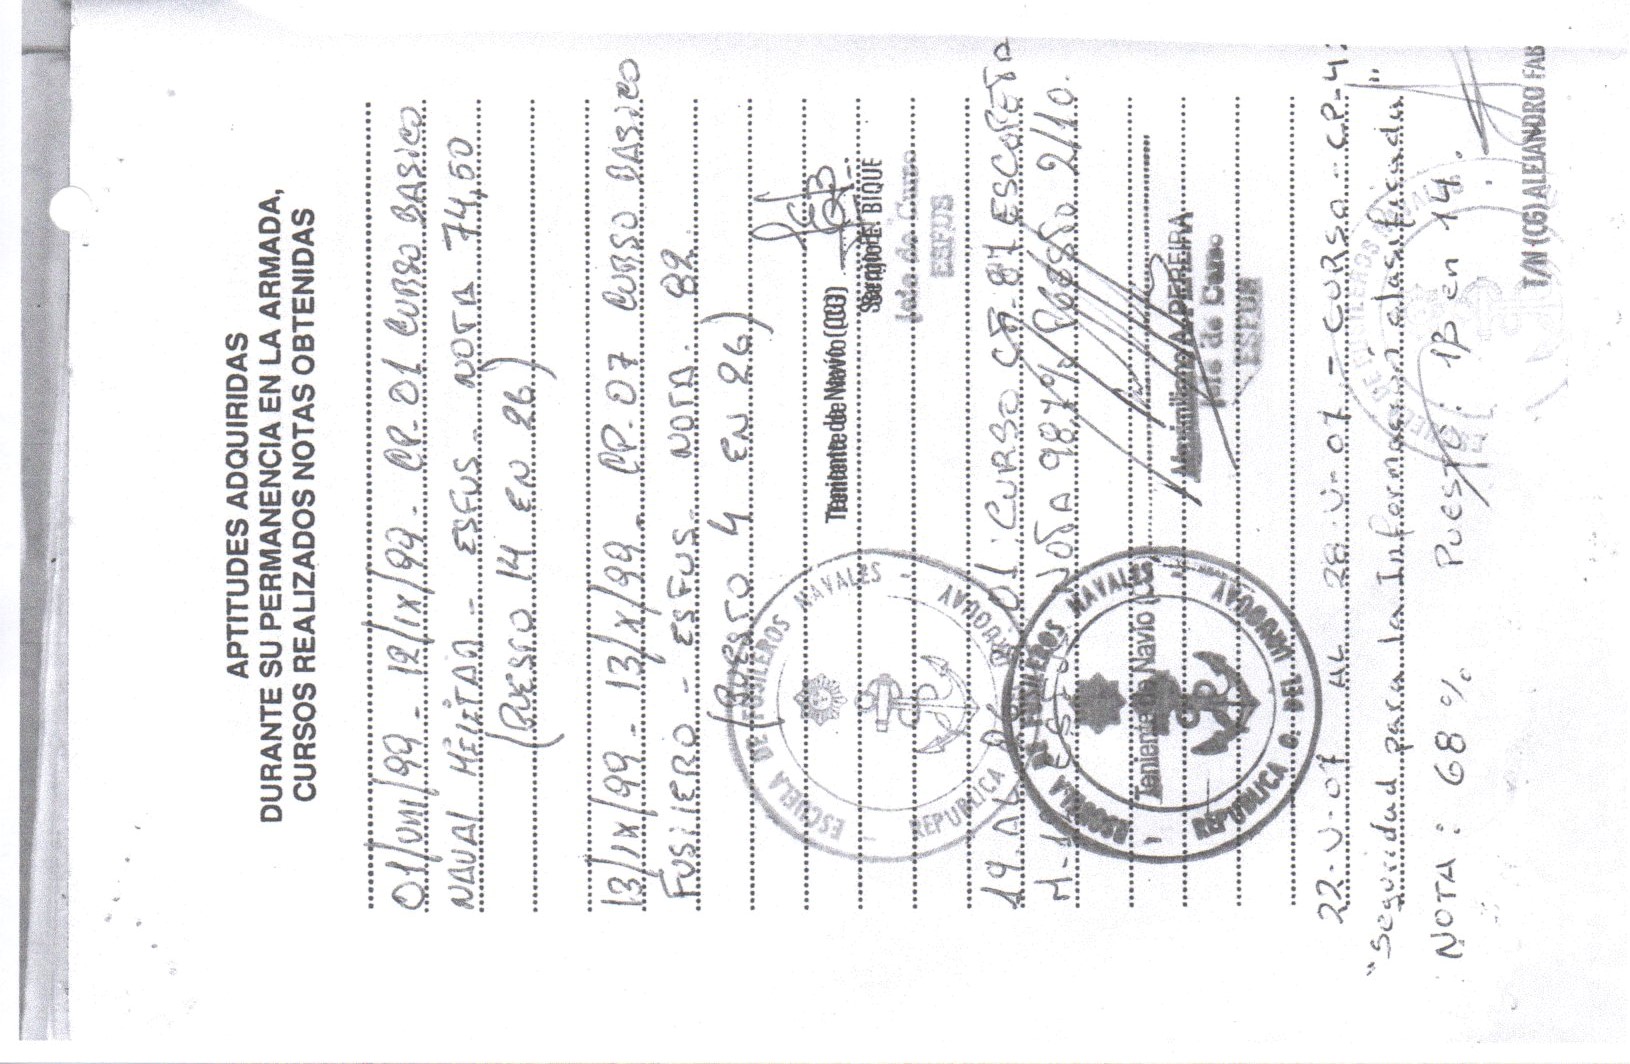 APTITUDES ADQUIRIDAS
DURANTE SU PERMANENCIA EN LA ARMADA,
CURSOS REALIZADOS NOTAS OBTENIDAS
01/VIII/99 - 12/IX/99 - CP-01 CURSO BASICO
NAVAL MILITAR - ESFUS - NOTA 74,50
(PUESTO 14 EN 26)
13/IX/99 - 13/X/99 - CP-07 CURSO BASICO
FUSILERO - ESFUS - NOTA. 82
(PUESTO 4 EN 26)
ESCUELA DE FUSILEROS NAVALES
REPUBLICA URUGUAY
Teniente de Navío (CG)
Sergio E. BIQUE
Jefe de Curso
ESFUS
19 AL 01: CURSO CP-87 ESCOPETA
NOTA 98,7% PUESTO 2/10.
ESCUELA DE FUSILEROS NAVALES
REPUBLICA O. DEL URUGUAY
Teniente de Navío (CG)
Maximiliano A. PEREIRA
Jefe de Curso
ESFUS
22-V-07 AL 28-V-07 - CURSO - CP-4
"Seguridad para la Información clasificada"
NOTA: 68 % PUESTO: 13 en 14.
DE FUSILEROS
T/N (CG) ALEJANDRO FAB